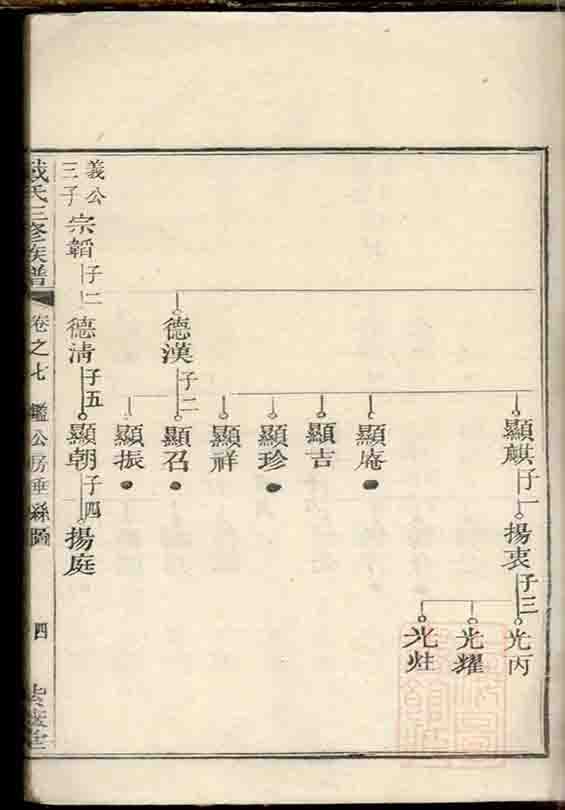 光丙
顯麒
子一
揚衷
子三
光耀
光炷
顯庵
顯吉
顯珍
顯祥
德漢
子二
顯召
顯振
義公
三子
宗韜
子二
德清
子五
顯朝
子四
揚庭
戴氏三修族譜
卷之七
鑑公房垂絲圖
四